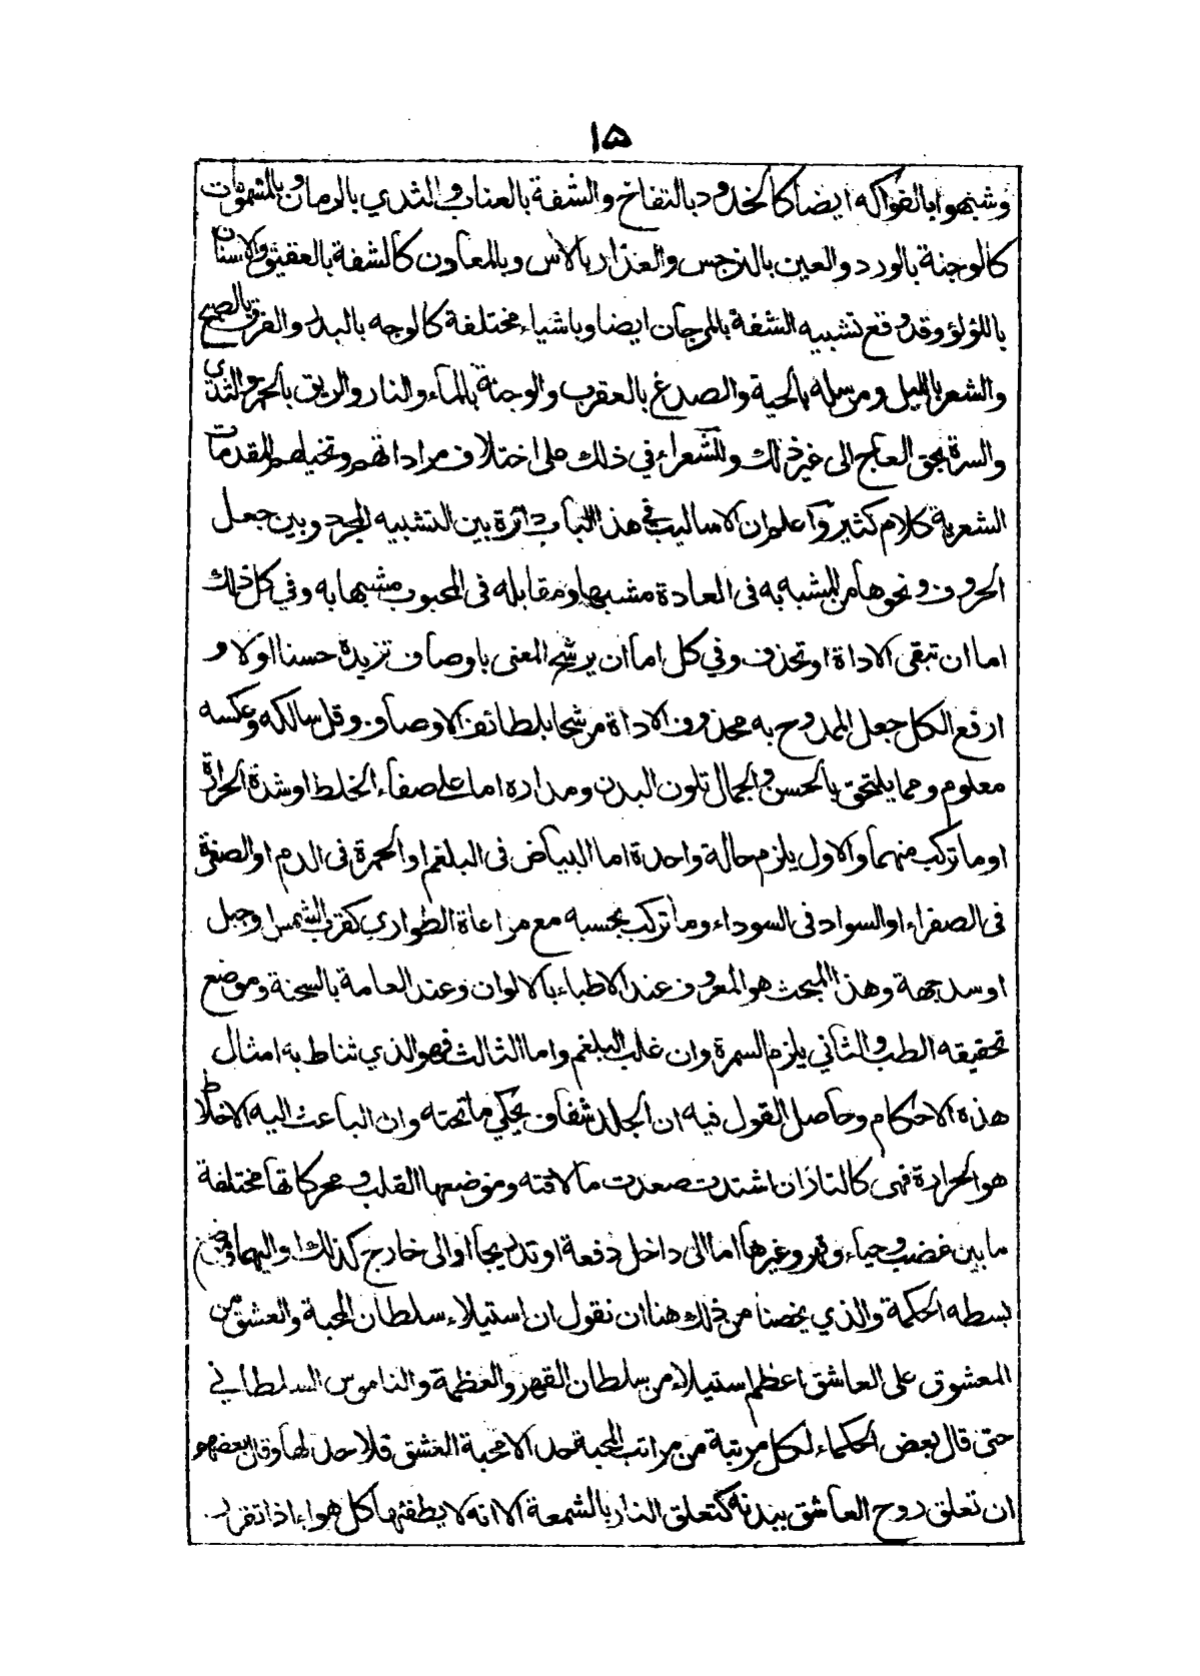 ١٥
وشبهوا بالفواكه ايضا كالخدود بالتفاح والشفة بالعناب والثدي بالرمان وبالمشمومات
كالوجنة بالورد والعين بالنرجس والعذار بالآس وبالمعادن كالشفة بالعقيق والاسنان
باللؤلؤ وقد وقع تشبيه الشفة بالمرجان ايضا وباشياء مختلفة كالوجه بالبدر والفرق بالصبح
والشعر بالليل ومرسله بالحية والصدغ بالعقرب والوجنة بالماء والنار والريق بالخمر والثدي
والسرة بحق العاج الى غير ذلك وللشعراء في ذلك على اختلاف مراداتهم وتخيلهم للمقدمات
الشعرية كلام كثير واعلم ان الاساليب في هذا الباب دائرة بين التشبيه المجرد وبين جعل
الحروف ونحوها من المشبه به فى العادة مشبها ومقابله فى المحبوب مشبها به وفي كل ذلك
اما ان تبقى الاداة او تحذف وفي كل اما ان يرشح المعنى باوصاف تزيده حسنا اولا و
ارفع الكل جعل الممدوح به محذوف الاداة مرشحا بلطائف الاوصاف وقل سالكه وعكسه
معلوم ومما يلتحق بالحسن والجمال تلون البدن ومداره اما على صفاء الخلط او شدة الحرارة
او ما تركب منهما والاول يلزم حالة واحدة اما البياض فى البلغم او الحمرة فى الدم او الصفرة
فى الصفراء او السواد فى السوداء وما تركب بحسبه مع مراعاة الطوارى كقرب الشمس او جبل
او سد جهة وهذا المبحث هو المعروف عند الاطباء بالالوان وعند العامة بالسحنة وموضع
تحقيقه الطب والثاني يلزم السمرة وان غلب البلغم واما الثالث فهو الذي تناط به امثال
هذه الاحكام وحاصل القول فيه ان الجلد شفاف يحكي ما تحته وان الباعث اليه الاخلاط
هو الحرارة فهى كالنار ان اشتدت صعدت ما لاقته وموضعها القلب ومحركاتها مختلفة
ما بين غضب وحياء وقهر وغيرها اما الى داخل دفعة او تدريجا او الى خارج كذلك او اليهما وموضع
بسطه الحكمة والذي يخصنا من ذلك هنا ان نقول ان استيلاء سلطان المحبة والعشق من
المعشوق على العاشق اعظم استيلاء من سلطان القهر والعظمة والناموس السلطاني
حتى قال بعض الحكماء لكل مرتبة من مراتب المحبة حد الا محبة العشق فلا حد لها وقال بعضهم
ان تعلق روح العاشق ببدنه كتعلق النار بالشمعة الا انه لا يطفئها كل هواء اذا تقرر